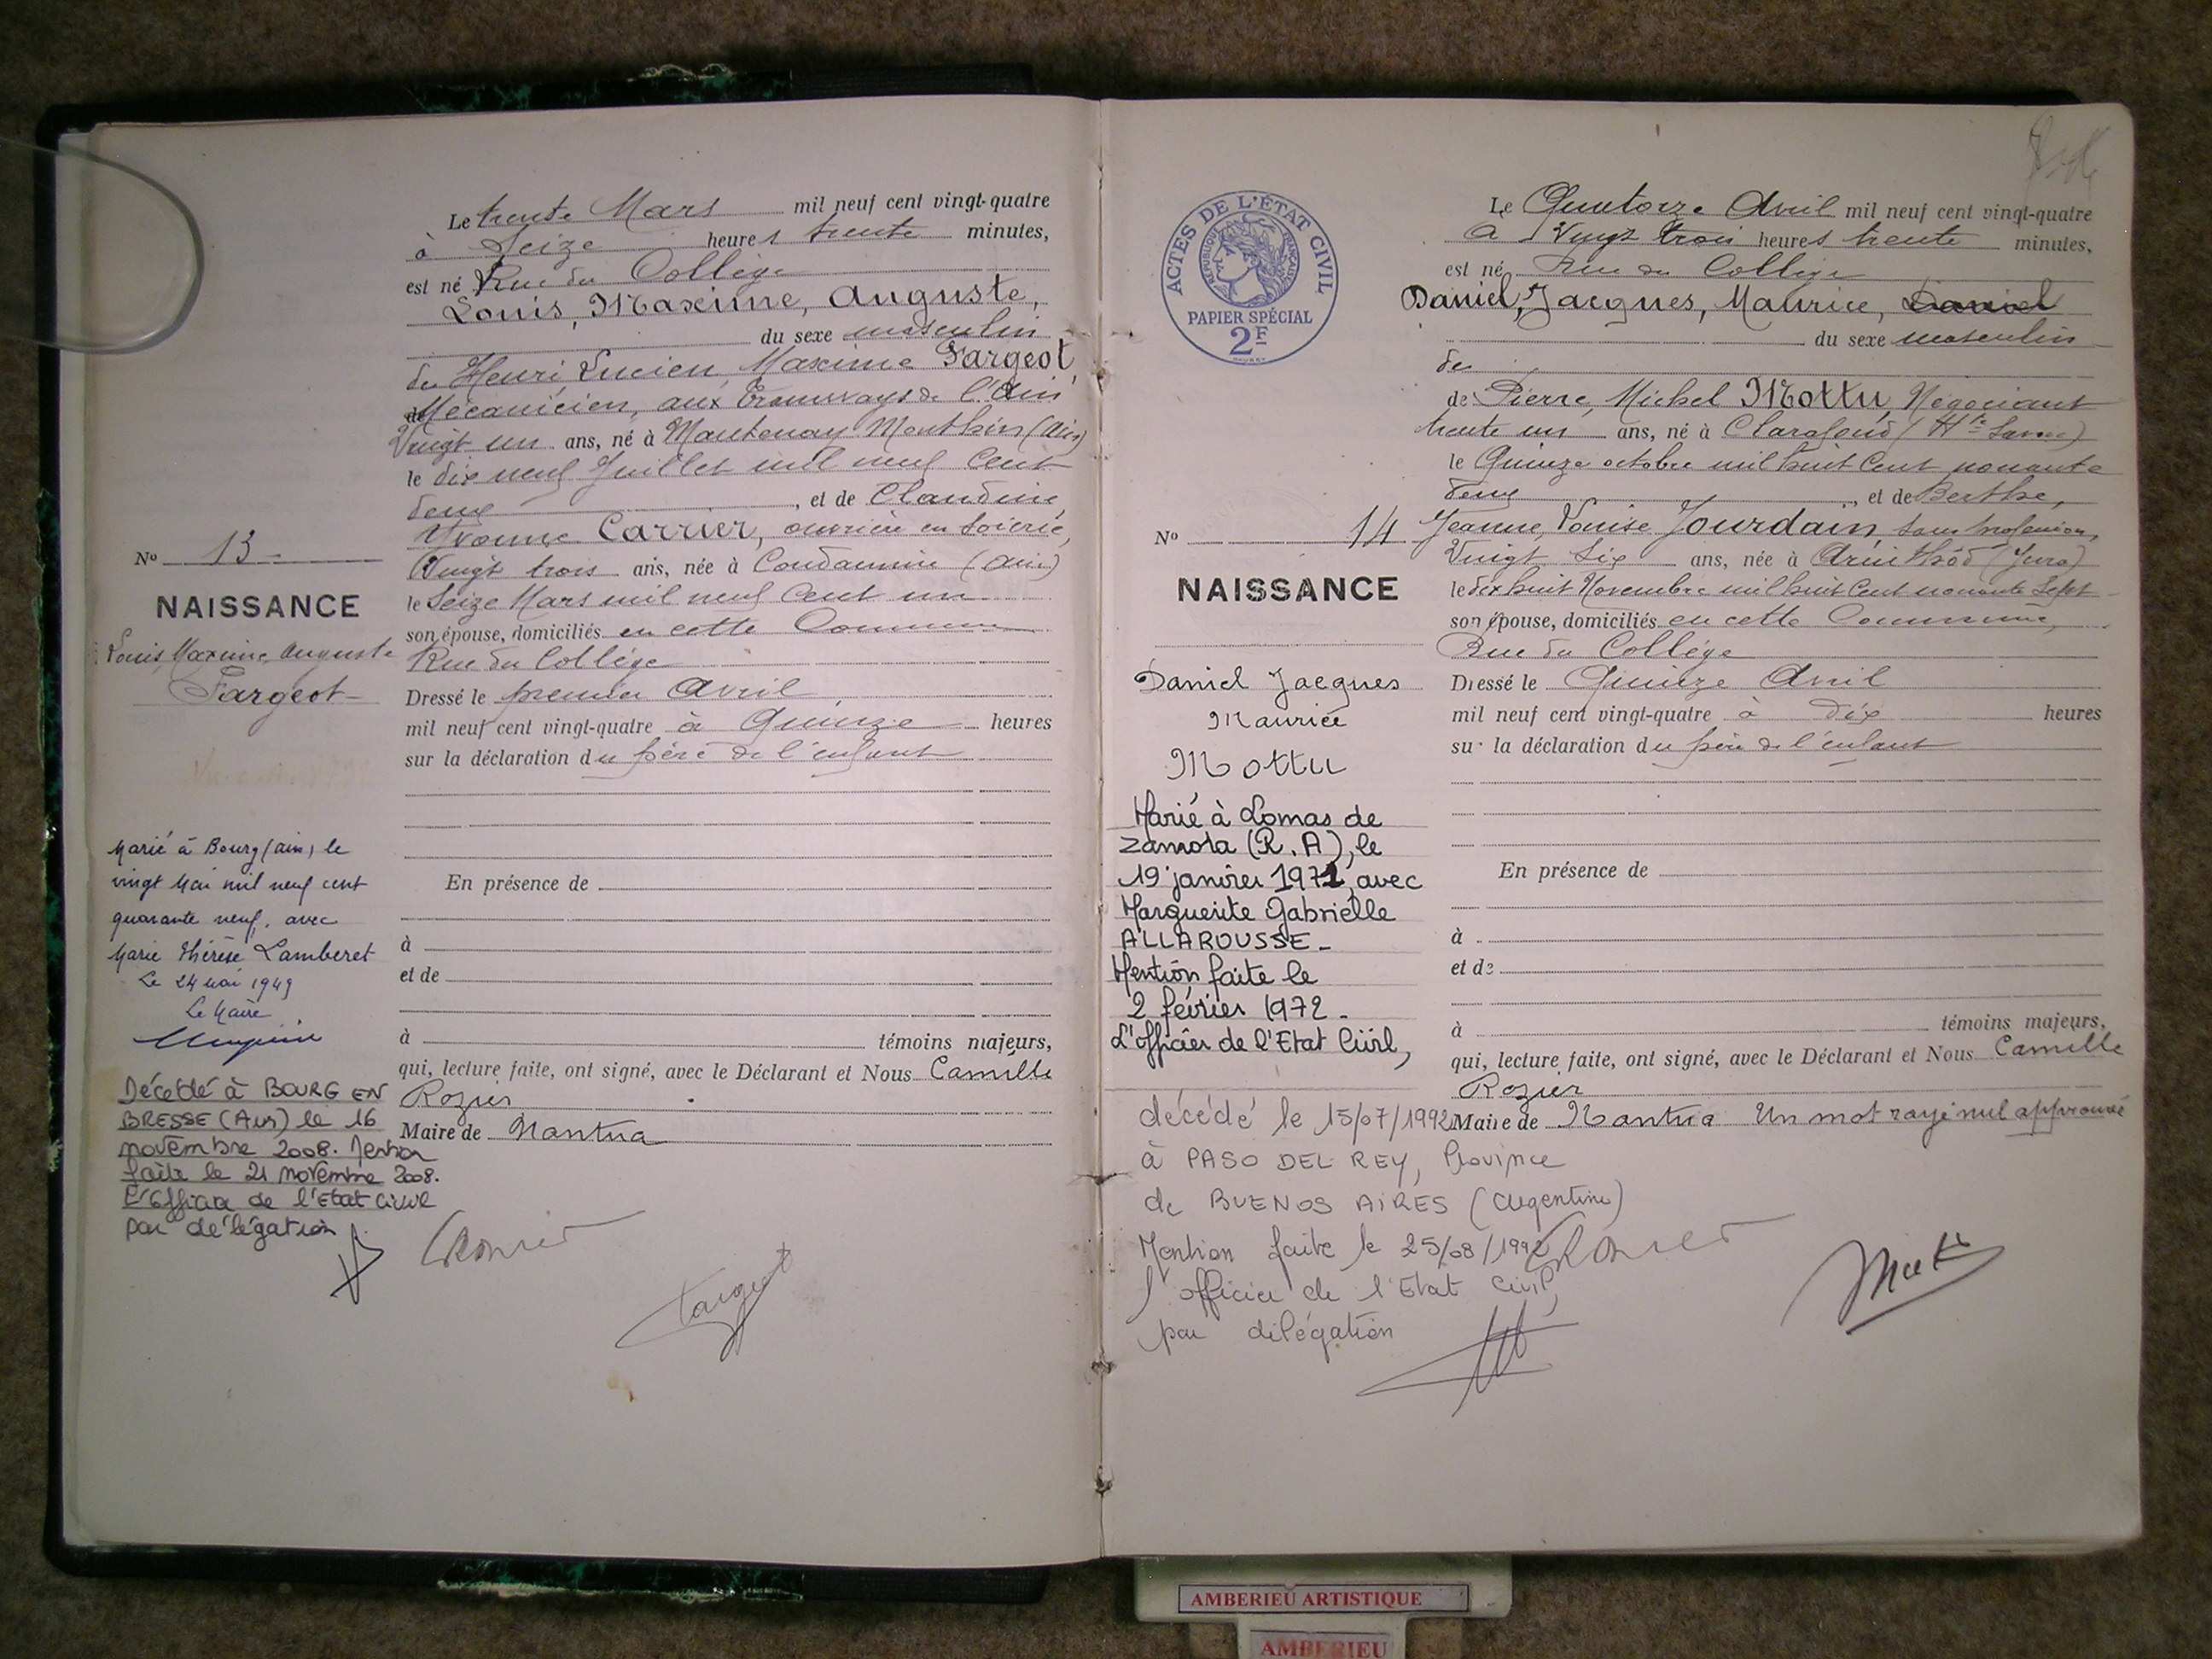 Le trente Mars mil neuf cent vingt-quatre
à Seize heures trente minutes,
est né Rue du Collège
Louis, Maxime, Auguste,
du sexe masculin
de Henri Lucien Maxime Fargeot,
Mécanicien, aux Tramways de l'Ain
Vingt un ans, né à Mantenay Montlin (Ain)
le dix neuf Juillet mil neuf cent
deux, et de Claudine
Yvonne Carrier, ouvrière en soierie,
Vingt trois ans, née à Condamine (Ain)
le Seize Mars mil neuf cent un
son épouse, domiciliés en cette Commune
Rue du Collège
Dressé le premier Avril
mil neuf cent vingt-quatre à Quinze heures
sur la déclaration du père de l'enfant
En présence de
à
et de
à témoins majeurs,
qui, lecture faite, ont signé, avec le Déclarant et Nous Camille
Rozier
Maire de Nantua
No 13
NAISSANCE
Louis, Maxime, Auguste
Fargeot
Marié à Bourg (ain), le
vingt Mai mil neuf cent
quarante neuf, avec
Marie Thérèse Lamberet
Le 24 mai 1949
Le Maire
Décédé à BOURG EN
BRESSE (Ain) le 16
novembre 2008. Mention
faite le 21 novembre 2008.
L'Officier de l'Etat Civil
par délégation
CRozier
Fargeot
ACTES DE L'ÉTAT CIVIL
RÉPUBLIQUE FRANÇAISE
PAPIER SPÉCIAL
2F
Le Quatorze Avril mil neuf cent vingt-quatre
à Vingt trois heures trente minutes,
est né Rue du Collège
Daniel, Jacques, Maurice, Daniel
du sexe masculin
de
de Pierre, Michel Mottu, Négociant
trente un ans, né à Clarafond (Hte Savoie)
le Quinze octobre mil huit cent nonante
deux, et de Berthe,
Jeanne, Louise Jourdain, sans profession,
Vingt Six ans, née à Arinthod (Jura)
le dix huit Novembre mil huit cent nonante Sept
son épouse, domiciliés en cette Commune,
Rue du Collège
Dressé le Quinze Avril
mil neuf cent vingt-quatre à dix heures
sur la déclaration du père de l'enfant
En présence de
à
et de
à témoins majeurs,
qui, lecture faite, ont signé, avec le Déclarant et Nous Camille
Rozier
Maire de Nantua Un mot rayé nul approuvé
No 14
NAISSANCE
Daniel Jacques
Maurice
Mottu
Marié à Lomas de
Zamora (R.A), le
19 janvier 1971, avec
Marguerite Gabrielle
ALLAROUSSE_
Mention faite le
2 février 1972_
L'officier de l'Etat Civil,
décédé le 15/07/1992
à PASO DEL REY, Province
de BUENOS AIRES (Argentine)
Mention faite le 25/08/1992
l'officier de l'Etat Civil,
par délégation
CRozier
AMBERIEU ARTISTIQUE
AMBERIEU